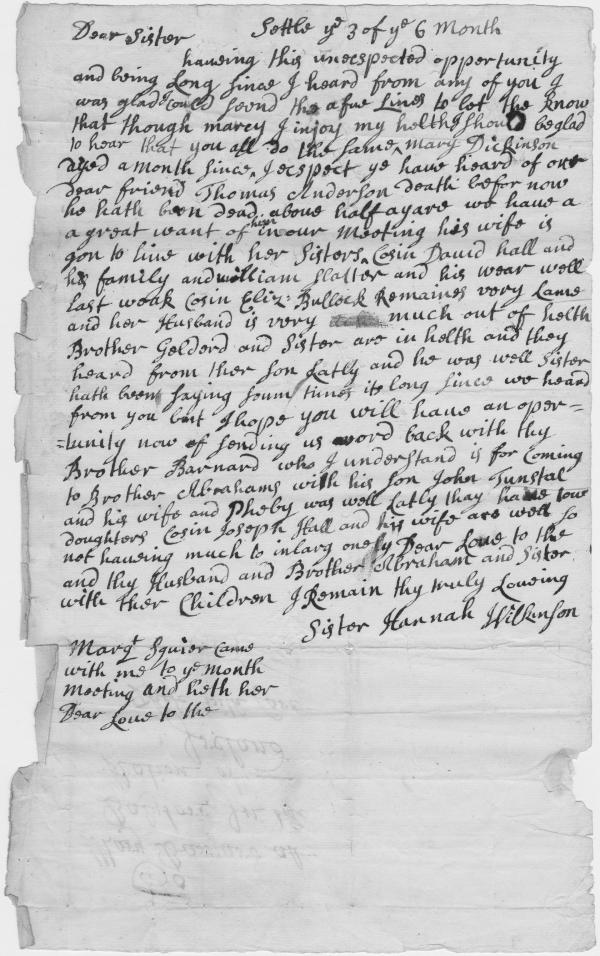 Dear Sister Settle ye 3 of ye 6 Month
haveing this unecspected oppertunity
and being Long since I heard from any of you I
was glad I could seend the a fue Lines to let the know
that though marcy I injoy my helth I shoud be glad
to hear that you all do the same, Mary Dickinson
dyed a month since, I ecspect ye have heard of one
dear friend Thomas Anderson Death befor now
he hath been dead above half a yare we have a
a great want of him in our Meeting his wife is
gon to live with her Sisters, Cosin David hall and
his family and william slatter and his wear well
last weak Cosin Eliz: Bullock Remaines very Lame
and her Husband is very much out of helth
Brother Gelderd and Sister are in helth and they
heard from ther son Latly and he was well Sister
hath been saying soum times its long since we heard
from you but I hope you will have an oper=
=tunity now of sending us word back with thy
Brother Barnard who I understand is for Coming
to Brother Abrahams with his son John Tunstal
and his wife and Pheby was well Latly thay have tow
doughters Cosin Joseph Hall and his wife are well so
not haveing much to inlarg onely Dear Love to the
and thy Husband and Brother Abraham and Sister
with ther Children I Remain thy truly Loveing
Sister Hannah Wilkinson
Margt Squier Came
with me to ye Month
Meeting and heth her
Dear Love to the